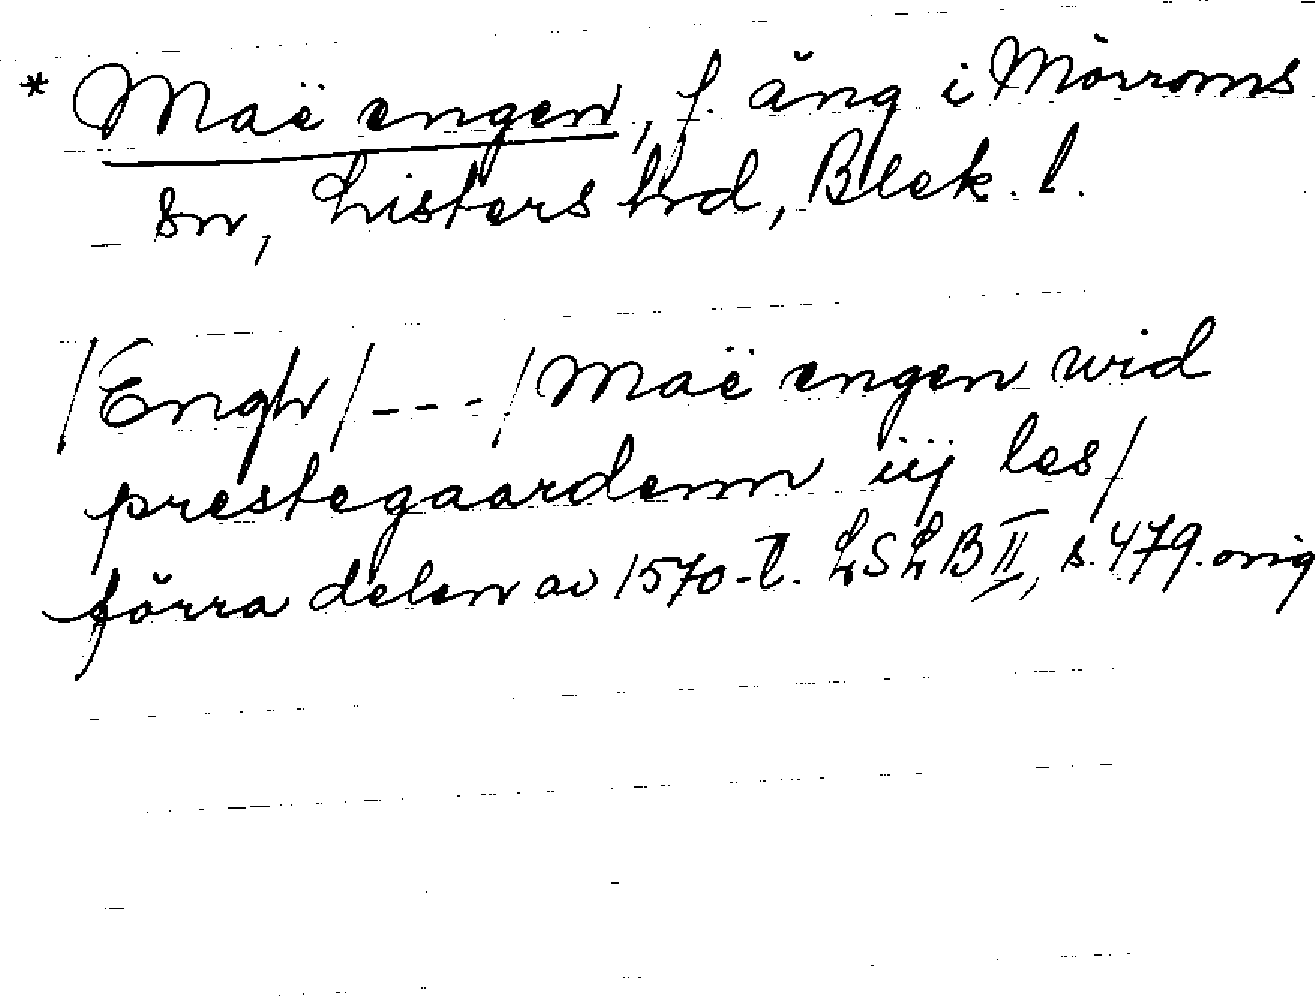 * Maë engen, f. äng i Mörroms
sn, Listers hrd, Blek. l.
/Engh/---/Maë engen wid
prestegaardenn iij les/
förra delen av 1570-t. LSLB II, s. 479. orig